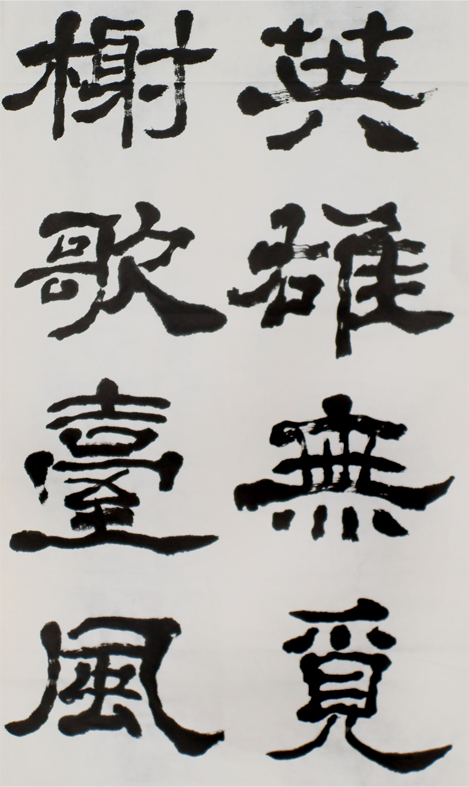 英雄無覓
榭歌臺風